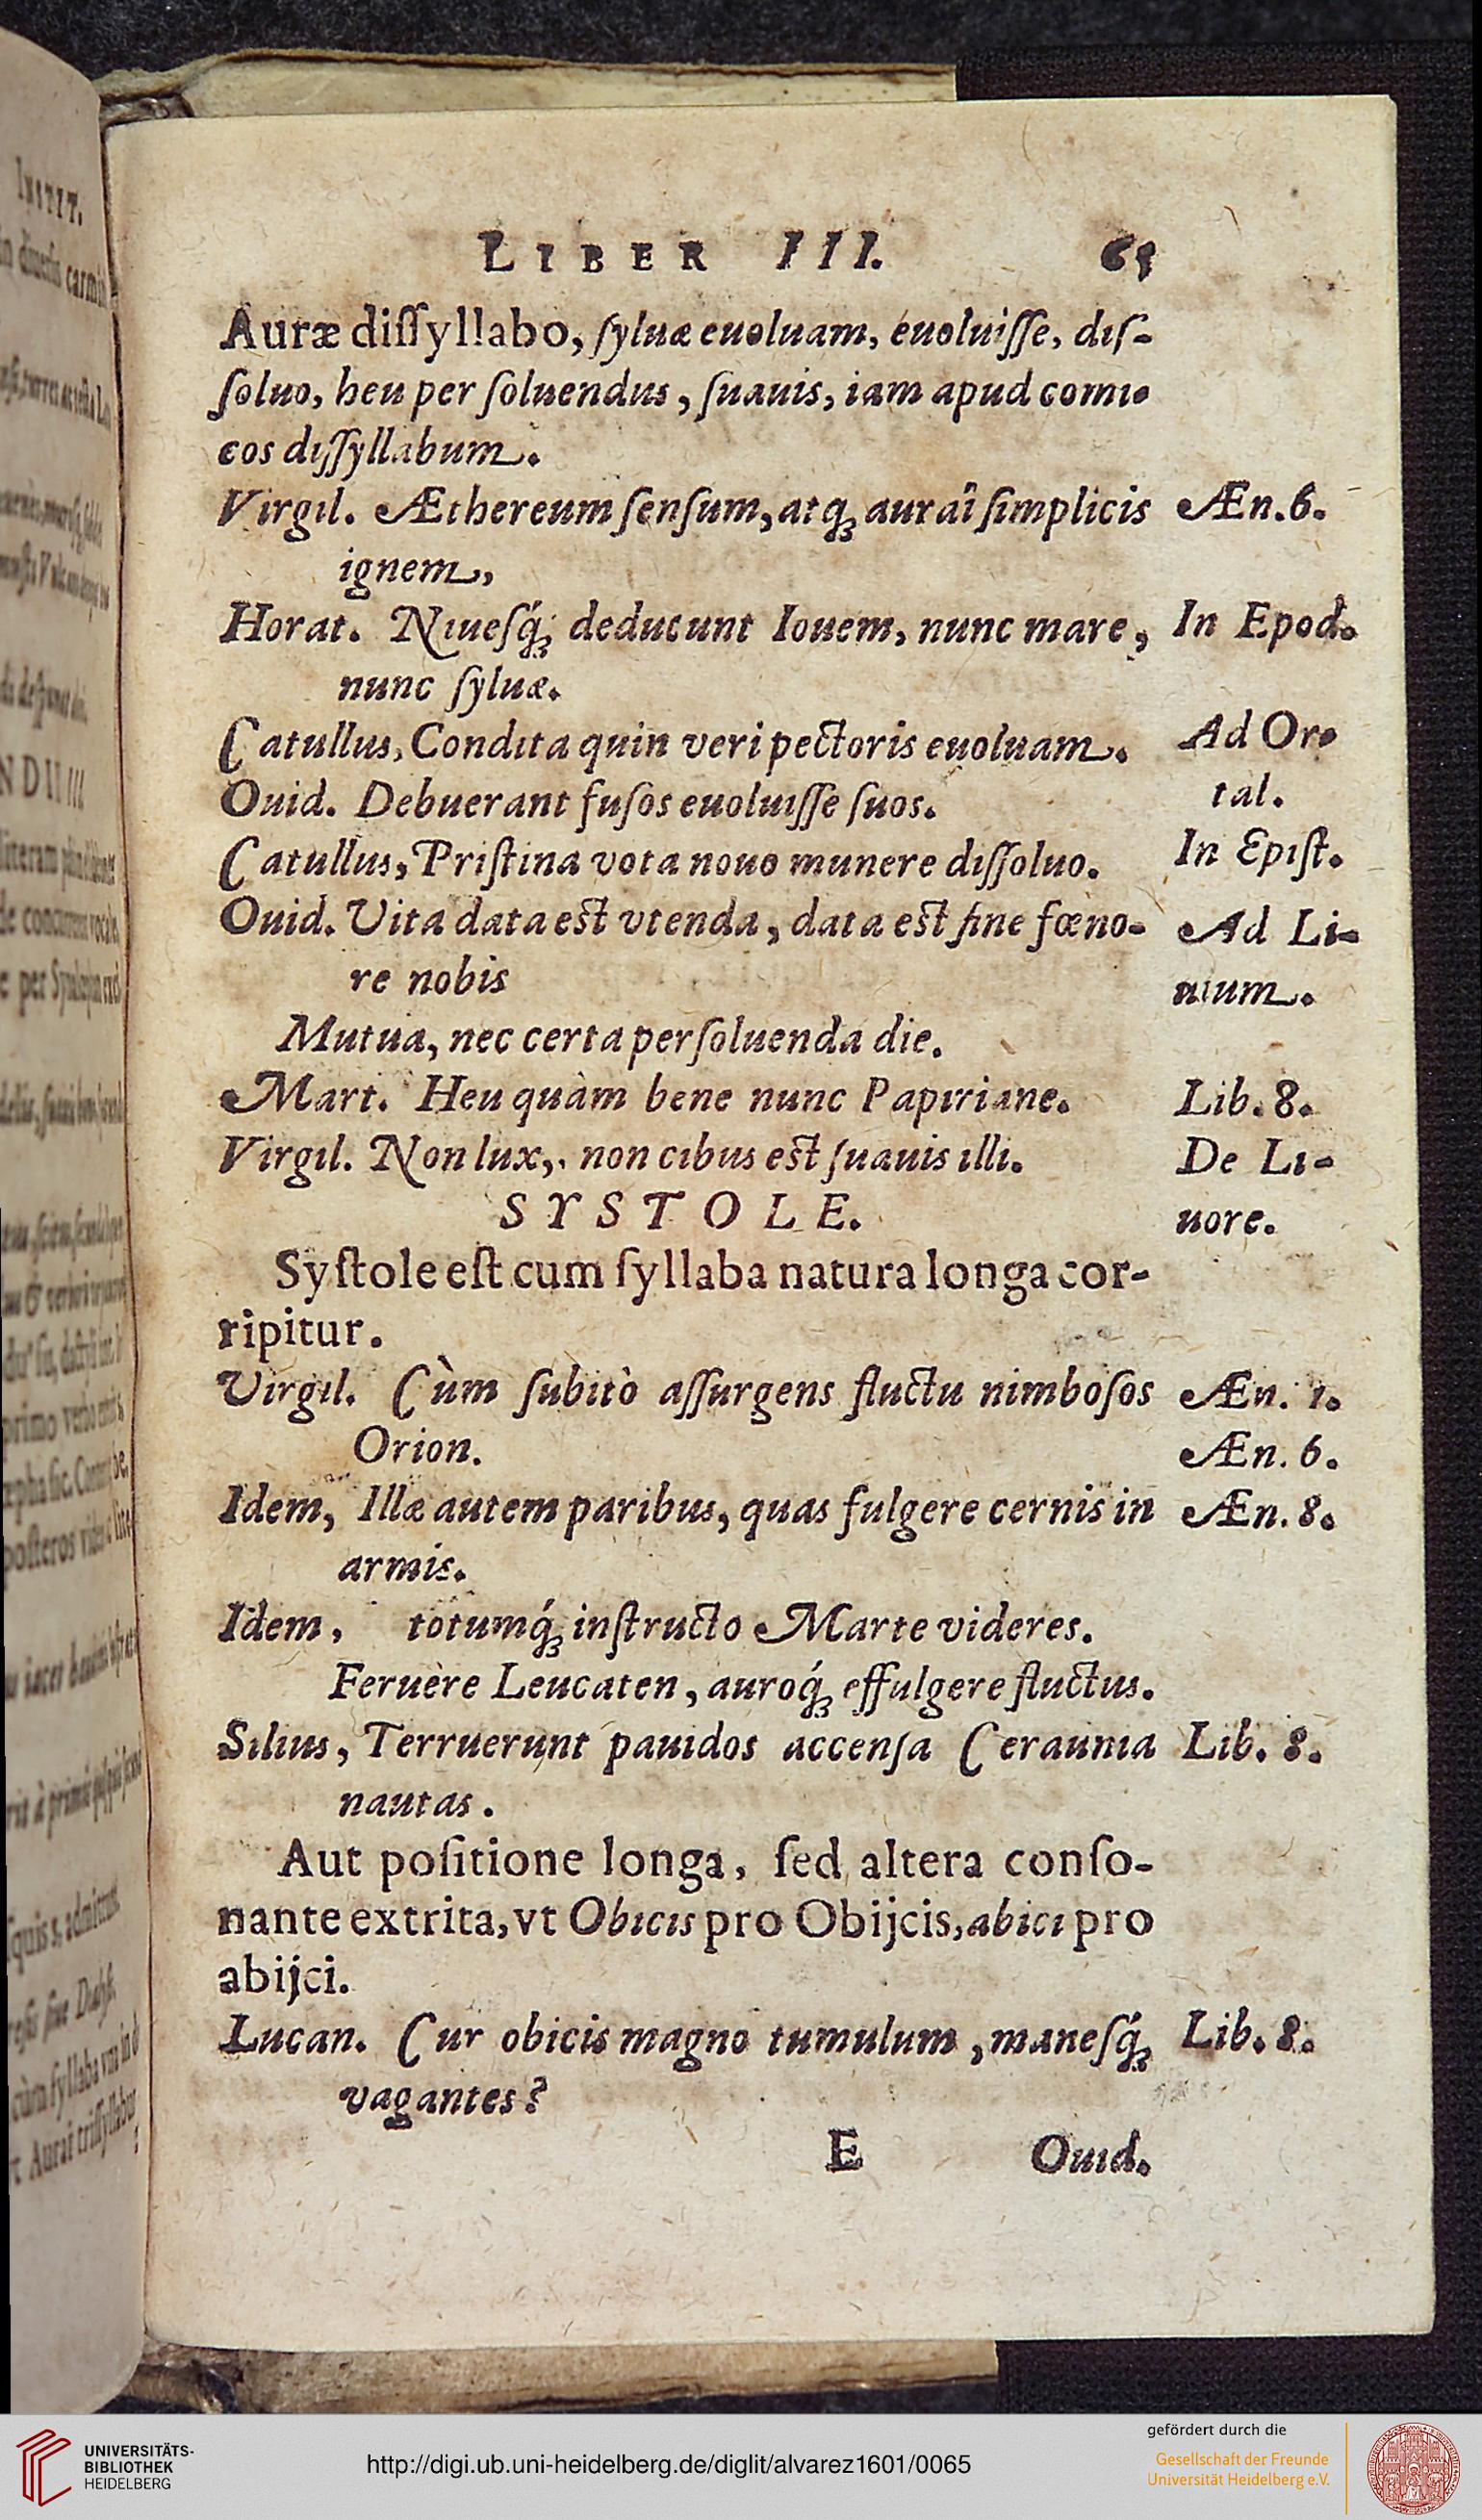 LIBER III. 65
Auræ dissyllabo, syluæ euoluam, euoluisse, dis-
soluo, heu per soluendus, suauis, iam apud comi-
cos dissyllabum.
Virgil. Æthereum sensum, atq; auraî simplicis Æn. 6.
ignem,
Horat. Niuesq́; deducunt Iouem, nunc mare, In Epod.
nunc syluæ.
Catullus, Condita quin veri pectoris euoluam. Ad Or-
Ouid. Debuerant fusos euoluisse suos. tal.
Catullus, Pristina vota nouo munere dissoluo. In Epist.
Ouid. Vita data est vtenda, data est sine fœno- Ad Li-
re nobis uium.
Mutua, nec certa persoluenda die.
Mart. Heu quàm bene nunc Papiriane. Lib. 8.
Virgil. Non lux, non cibus est suauis illi. De Li-
SYSTOLE. uore.
Systole est cum syllaba natura longa cor-
ripitur.
Virgil. Cùm subitò assurgens fluctu nimbosos Æn. 1.
Orion. Æn. 6.
Idem, Illæ autem paribus, quas fulgere cernis in Æn. 8.
armis.
Idem, totumq́; instructo Marte videres.
Feruère Leucaten, auroq́; effulgere fluctus.
Silius, Terruerunt pauidos accensa Ceraunia Lib. 8.
nautas.
Aut positione longa, sed altera conso-
nante extrita, vt Obicis pro Obijcis, abici pro
abijci.
Lucan. Cur obicis magno tumulum, manesq́; Lib. 8.
vagantes?
E Ouid.
INSTIT.
UNIVERSITÄTS-
BIBLIOTHEK
HEIDELBERG
http://digi.ub.uni-heidelberg.de/diglit/alvarez1601/0065
gefördert durch die
Gesellschaft der Freunde
Universität Heidelberg e.V.